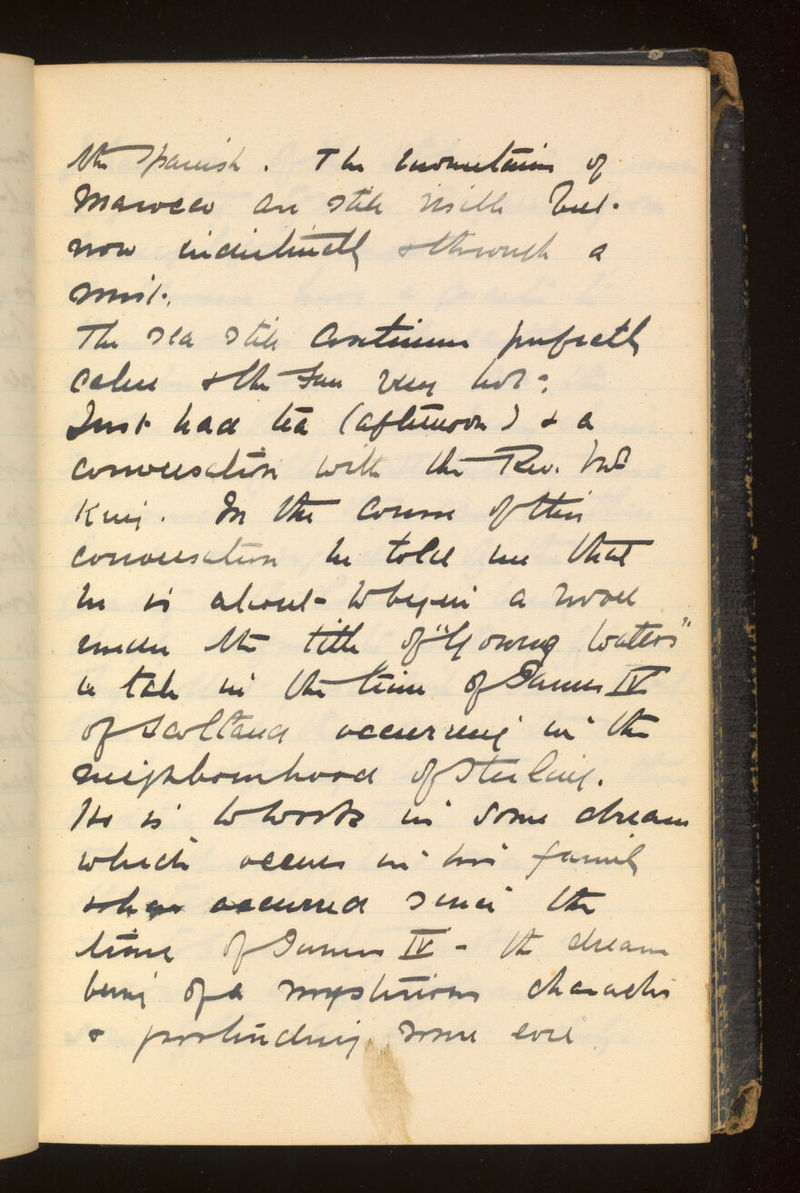 the Spanish. The mountains of
Marocco are still visible but
now indistinctly & through a
mist.
The sea still continues perfectly
calm & the sun very hot.
Just had tea (afternoon) & a
conversation with the Rev. Mr
King. In the course of this
conversation he told me that
he is about to begin a novel
under the title of "Young Waters"
a tale in the time of James IV
of Scotland occurring in the
neighbourhood of Sterling.
He is to work in some dream
which occurs in his family
& has occurred since the
time of James IV - the dream
being of a mysterious character
& portending some evil